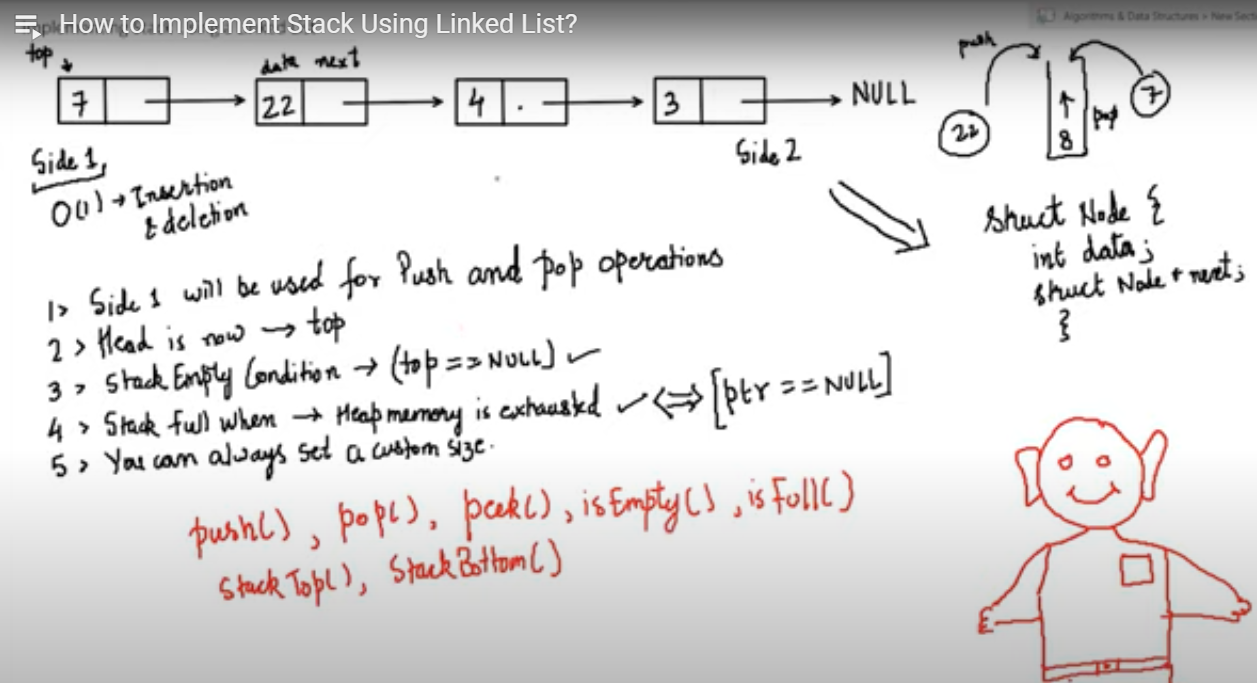 How to Implement Stack Using Linked List?
Algorithms & Data Structures > New Sect
top
data next
7
22
4 .
3
NULL
Side 1,
Side 2
O(1) → Insertion
& deletion
push
22
↑
8
pop
7
struct Node {
int data;
struct Node * next;
}
1> Side 1 will be used for Push and pop operations
2> Head is now → top
3> Stack Empty Condition → (top == NULL) ✓
4> Stack full when → Heap memory is exhausted ✓ ⇔ [ptr == NULL]
5> You can always set a custom size.
push(), pop(), peek(), isEmpty(), isFull()
StackTop(), StackBottom()